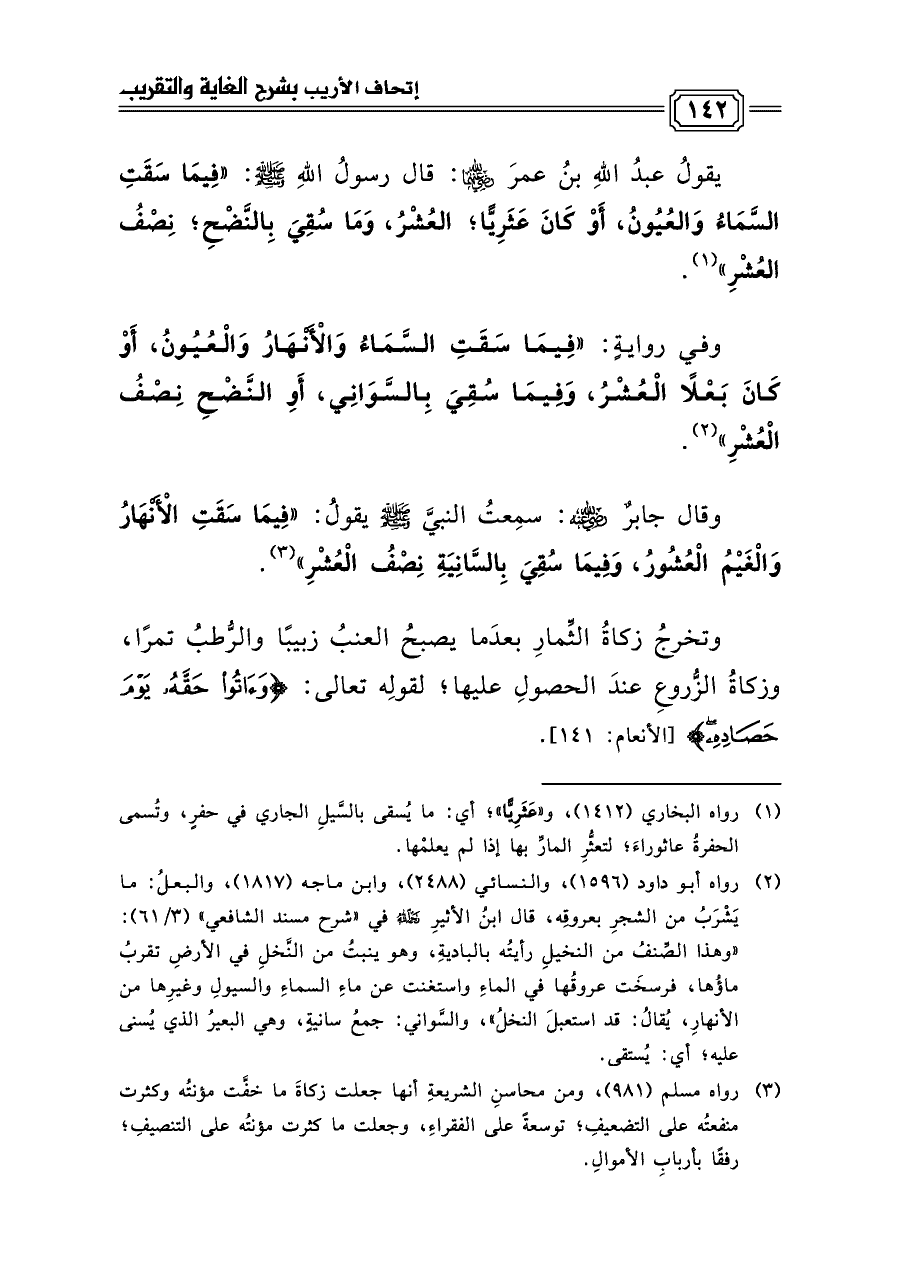 إتحاف الأريب بشرح الغاية والتقريب
١٤٢
يقولُ عبدُ اللهِ بنُ عمرَ رضي الله عنهما: قال رسولُ اللهِ ﷺ: «فِيمَا سَقَتِ
السَّمَاءُ وَالعُيُونُ، أَوْ كَانَ عَثَرِيًّا؛ العُشْرُ، وَمَا سُقِيَ بِالنَّضْحِ؛ نِصْفُ
العُشْرِ»(١).
وفي روايةٍ: «فِيمَا سَقَتِ السَّمَاءُ وَالْأَنْهَارُ وَالْعُيُونُ، أَوْ
كَانَ بَعْلًا الْعُشْرُ، وَفِيمَا سُقِيَ بِالسَّوَانِي، أَوِ النَّضْحِ نِصْفُ
الْعُشْرِ»(٢).
وقال جابرٌ رضي الله عنه: سمِعتُ النبيَّ ﷺ يقولُ: «فِيمَا سَقَتِ الْأَنْهَارُ
وَالْغَيْمُ الْعُشُورُ، وَفِيمَا سُقِيَ بِالسَّانِيَةِ نِصْفُ الْعُشْرِ»(٣).
وتخرجُ زكاةُ الثِّمارِ بعدَما يصبحُ العنبُ زبيبًا والرُّطبُ تمرًا،
وزكاةُ الزُّروعِ عندَ الحصولِ عليها؛ لقولِه تعالى: ﴿وَءَاتُواْ حَقَّهُۥ يَوْمَ
حَصَادِهِۦۖ﴾ [الأنعام: ١٤١].
(١) رواه البخاري (١٤١٢)، و«عَثَرِيًّا»؛ أي: ما يُسقى بالسَّيلِ الجاري في حفرٍ، وتُسمى
الحفرةُ عاثوراءَ؛ لتعثُّرِ المارِّ بها إذا لم يعلمْها.
(٢) رواه أبو داود (١٥٩٦)، والنسائي (٢٤٨٨)، وابن ماجه (١٨١٧)، والبعلُ: ما
يَشْرَبُ من الشجرِ بعروقِه، قال ابنُ الأثيرِ رحمه الله في «شرح مسند الشافعي» (٦١/٣):
«وهذا الصِّنفُ من النخيلِ رأيتُه بالباديةِ، وهو ينبتُ من النَّخلِ في الأرضِ تقربُ
ماؤُها، فرسخَت عروقُها في الماءِ واستغنت عن ماءِ السماءِ والسيولِ وغيرِها من
الأنهارِ، يُقالُ: قد استعبلَ النخلُ»، والسَّواني: جمعُ سانيةٍ، وهي البعيرُ الذي يُسنى
عليه؛ أي: يُستقى.
(٣) رواه مسلم (٩٨١)، ومن محاسنِ الشريعةِ أنها جعلت زكاةَ ما خفَّت مؤنتُه وكثرت
منفعتُه على التضعيفِ؛ توسعةً على الفقراءِ، وجعلت ما كثرت مؤنتُه على التنصيفِ؛
رفقًا بأربابِ الأموالِ.